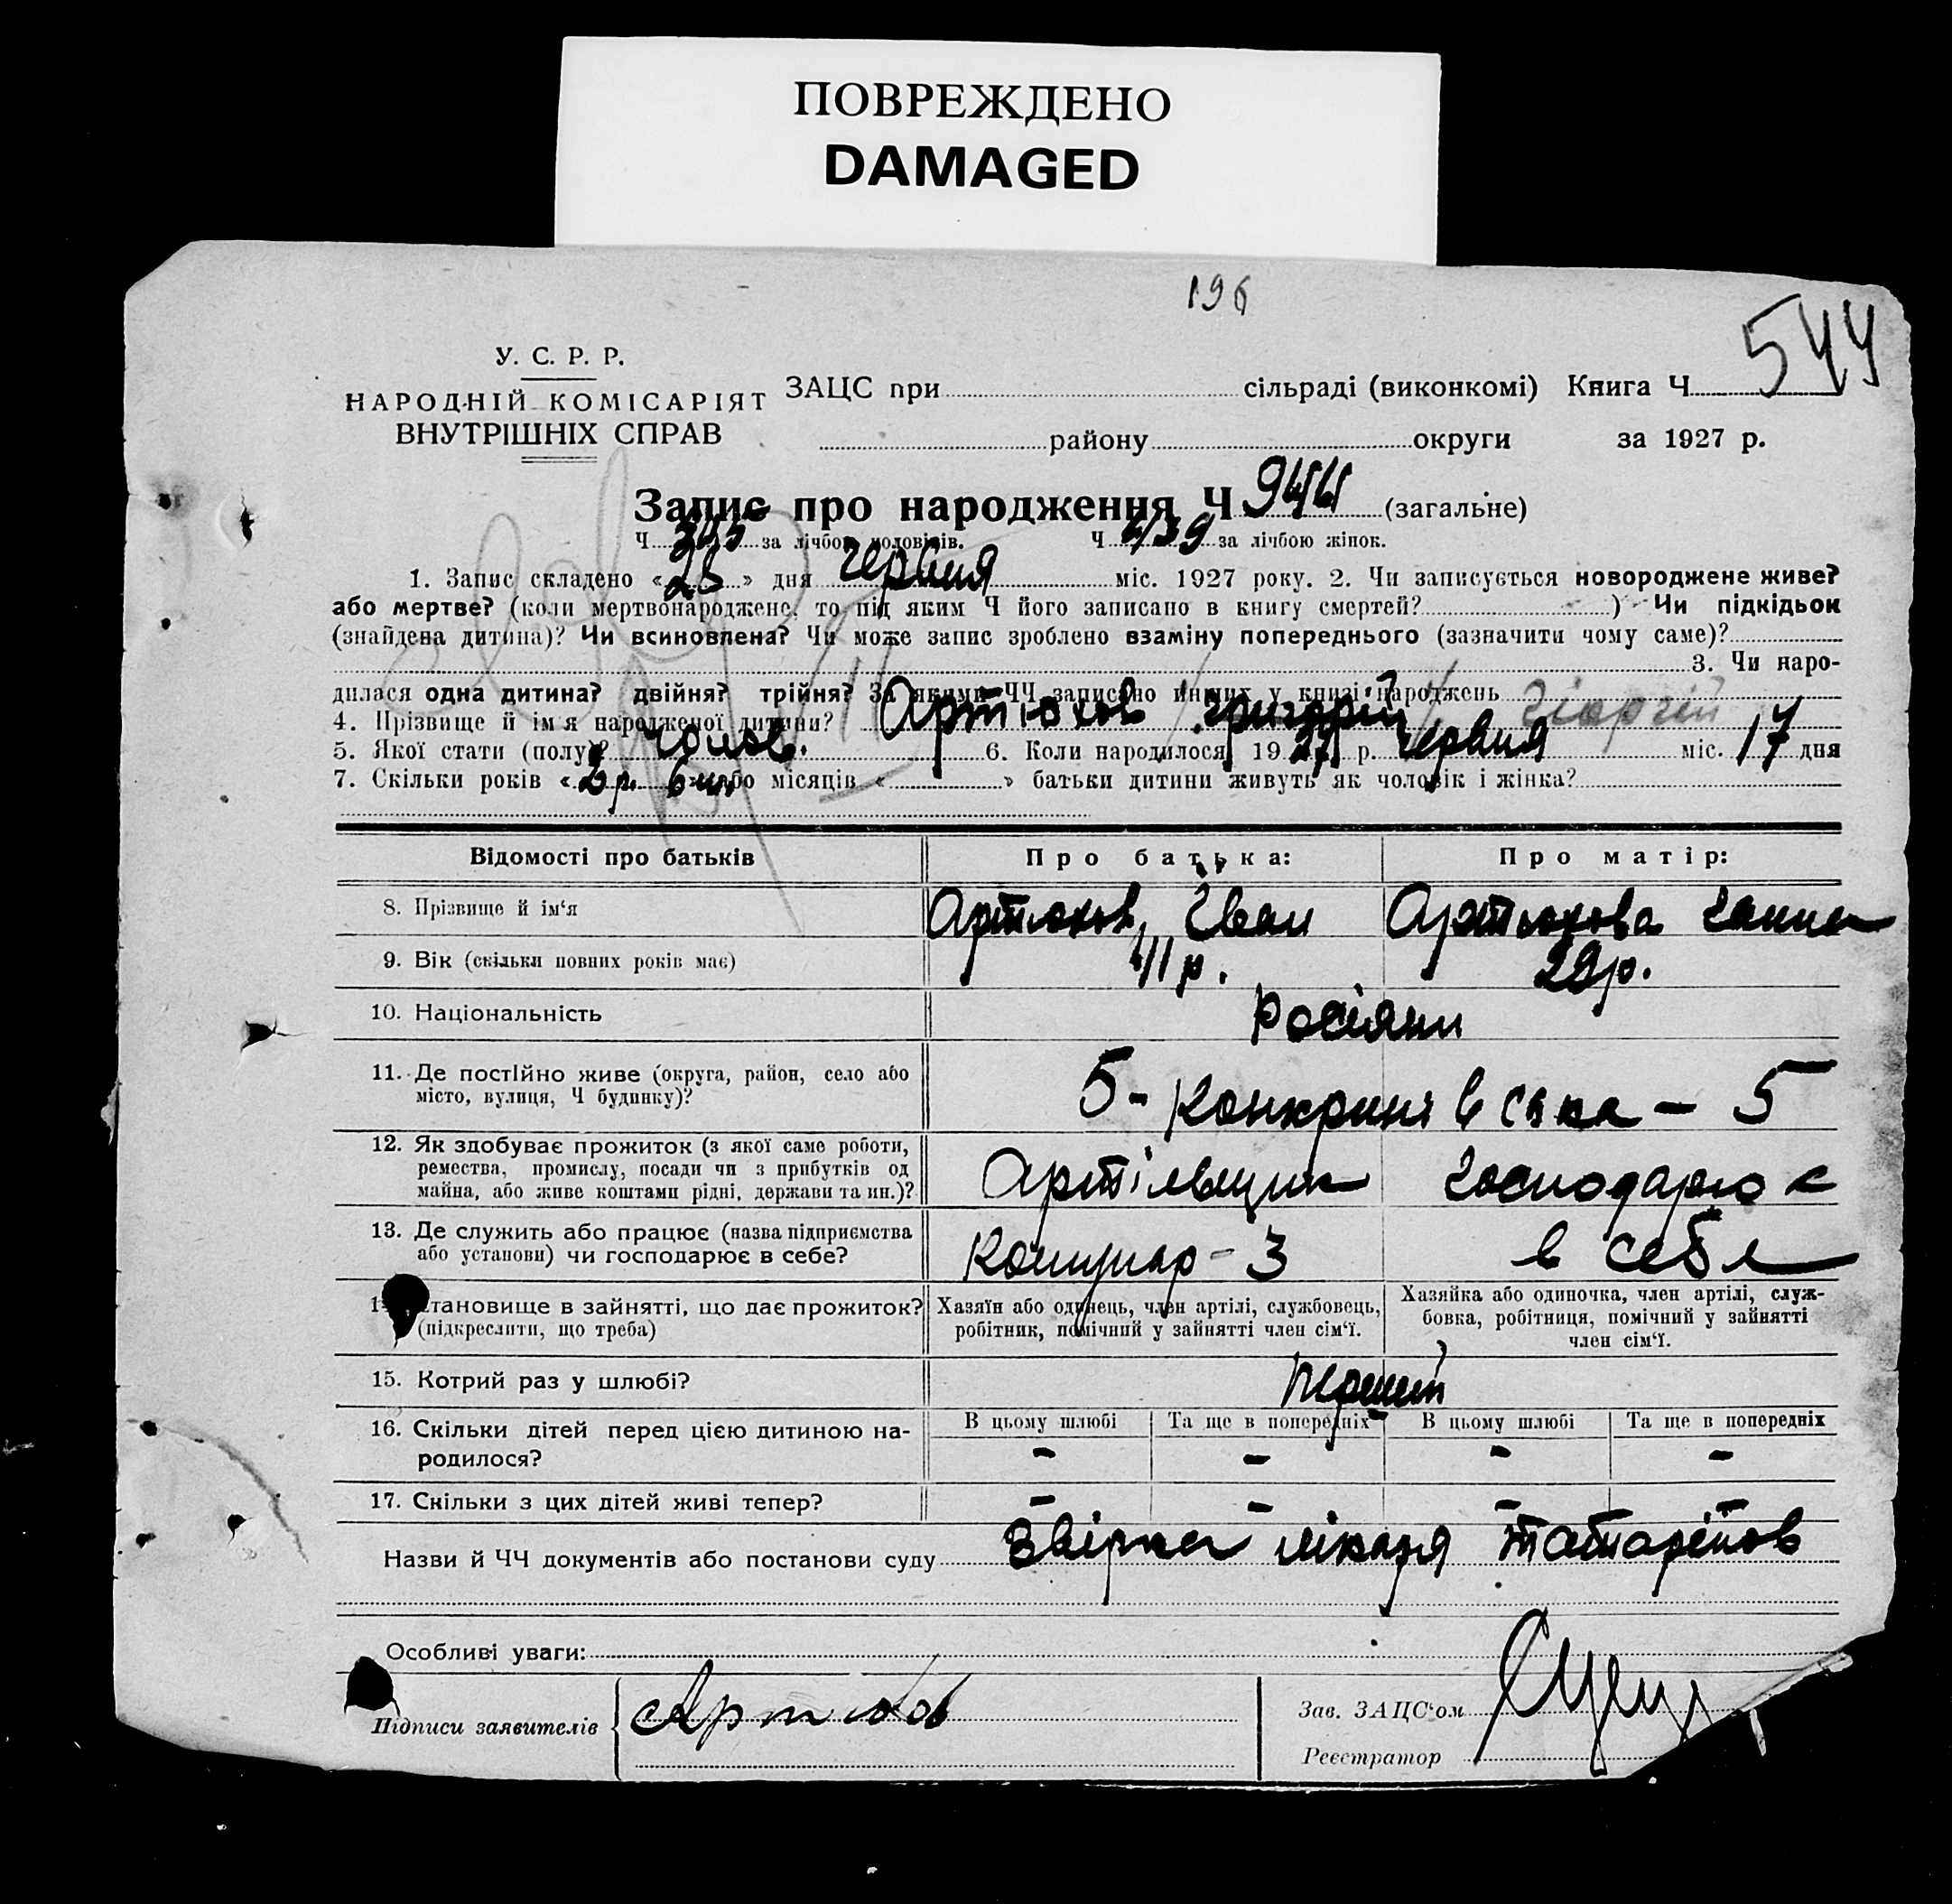 ПОВРЕЖДЕНО
DAMAGED
196
544
У. С. Р. Р.
НАРОДНІЙ КОМІСАРІЯТ
ВНУТРІШНІХ СПРАВ
ЗАЦС при сільраді (виконкомі) Книга Ч
району округи за 1927 р.
Запис про народження Ч 944 (загальне)
Ч за лічбою чоловіків. Ч 439 за лічбою жінок.
1. Запис складено « » дня червня міс. 1927 року. 2. Чи записується новороджене живе?
або мертве? (коли мертвонароджене, то під яким Ч його записано в книгу смертей? ) Чи підкідьок
(знайдена дитина)? Чи всиновлена? Чи може запис зроблено взаміну попереднього (зазначити чому саме)?
3. Чи наро-
дилася одна дитина? двійня? трійня? За якими ЧЧ записано инших у книзі народжень
4. Прізвище й імя народженої дитини? Артюхов Григорій Гіоргій
5. Якої стати (полу)? чолов. 6. Коли народилося 1927 р. червня міс. 17 дня
7. Скільки років « 2 р. 6 м. » або місяців « » батьки дитини живуть як чоловік і жінка?
Відомості про батьків Про батька: Про матір:
8. Прізвище й ім'я Артюхов Іван Артюхова Ганна
9. Вік (скільки повних років має) 41 р. 29 р.
10. Національність Росіяни
11. Де постійно живе (округа, район, село або
місто, вулиця, Ч будинку)? 5-
12. Як здобуває прожиток (з якої саме роботи,
ремества, промислу, посади чи з прибутків од
майна, або живе коштами рідні, держави та ин.)? Артільщик господарює
13. Де служить або працює (назва підприємства
або установи) чи господарює в себе? Комунар-3 в себе
тановище в зайнятті, що дає прожиток?
(підкреслити, що треба)
Хазяїн або одинець, член артілі, службовець,
робітник, помічний у зайнятті член сім'ї.
Хазяйка або одиночка, член артілі, служ-
бовка, робітниця, помічний у зайнятті
член сім'ї.
15. Котрий раз у шлюбі? перший
16. Скільки дітей перед цією дитиною на-
родилося?
В цьому шлюбі Та ще в попередніх В цьому шлюбі Та ще в попередніх
- - - -
17. Скільки з цих дітей живі тепер? - - - -
Назви й ЧЧ документів або постанови суду лікаря
Особливі уваги:
Підписи заявителів Артюхов
Зав. ЗАЦС'ом
Реєстратор